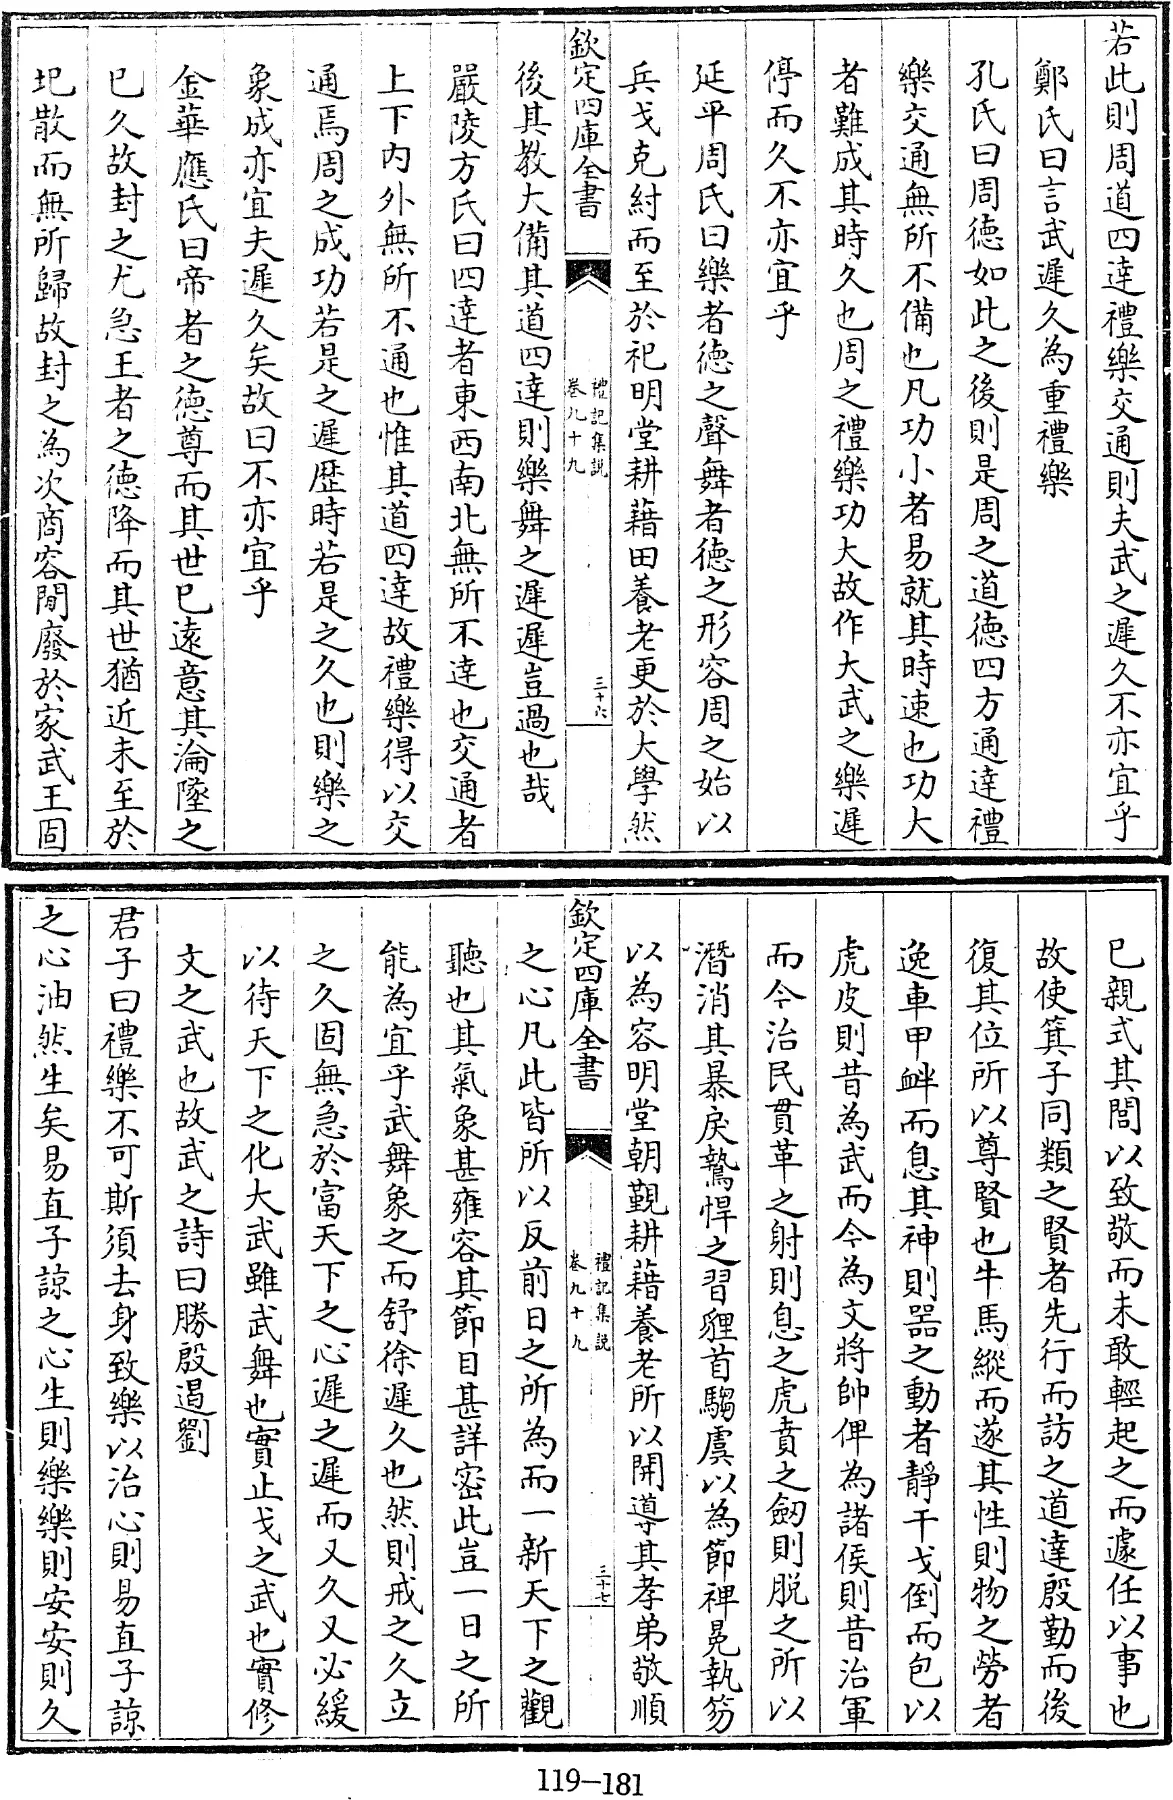 若此則周道四達禮樂交通則夫武之遲久不亦宜乎
鄭氏曰言武遲久為重禮樂
孔氏曰周德如此之後則是周之道德四方通達禮
樂交通無所不備也凡功小者易就其時速也功大
者難成其時久也周之禮樂功大故作大武之樂遲
停而久不亦宜乎
延平周氏曰樂者德之聲舞者德之形容周之始以
兵戈克紂而至於祀明堂耕藉田養老更於大學然
欽定四庫全書
禮記集說
卷九十九
三十六
後其教大備其道四達則樂舞之遲遲豈過也哉
嚴陵方氏曰四達者東西南北無所不達也交通者
上下內外無所不通也惟其道四達故禮樂得以交
通焉周之成功若是之遲歷時若是之久也則樂之
象成亦宜夫遲久矣故曰不亦宜乎
金華應氏曰帝者之德尊而其世已遠意其淪墜之
已久故封之尤急王者之德降而其世猶近未至於
圯散而無所歸故封之為次商容閒廢於家武王固
已親式其閭以致敬而未敢輕起之而遽任以事也
故使箕子同類之賢者先行而訪之道達殷勤而後
復其位所以尊賢也牛馬縱而遂其性則物之勞者
逸車甲衅而息其神則器之動者靜干戈倒而包以
虎皮則昔為武而今為文將帥俾為諸侯則昔治軍
而今治民貫革之射則息之虎賁之劒則脫之所以
潛消其暴戾鷙悍之習貍首騶虞以為節裨冕執笏
以為容明堂朝覲耕藉養老所以開導其孝弟敬順
欽定四庫全書
禮記集說
卷九十九
三十七
之心凡此皆所以反前日之所為而一新天下之觀
聽也其氣象甚雍容其節目甚詳密此豈一日之所
能為宜乎武舞象之而舒徐遲久也然則戒之久立
之久固無急於富天下之心遲之遲而又久又必緩
以待天下之化大武雖武舞也實止戈之武也實修
文之武也故武之詩曰勝殷遏劉
君子曰禮樂不可斯須去身致樂以治心則易直子諒
之心油然生矣易直子諒之心生則樂樂則安安則久
119-181